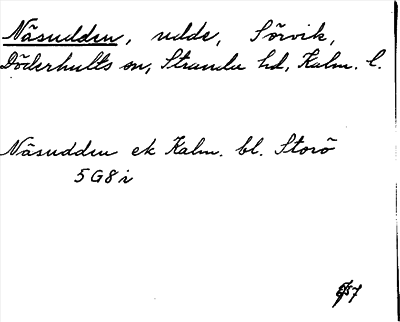 Näsudden, udde, Sörvik,
Döderhults sn, Stranda hd, Kalm. l.
Näsudden ek Kalm. bl. Storö
5G8i